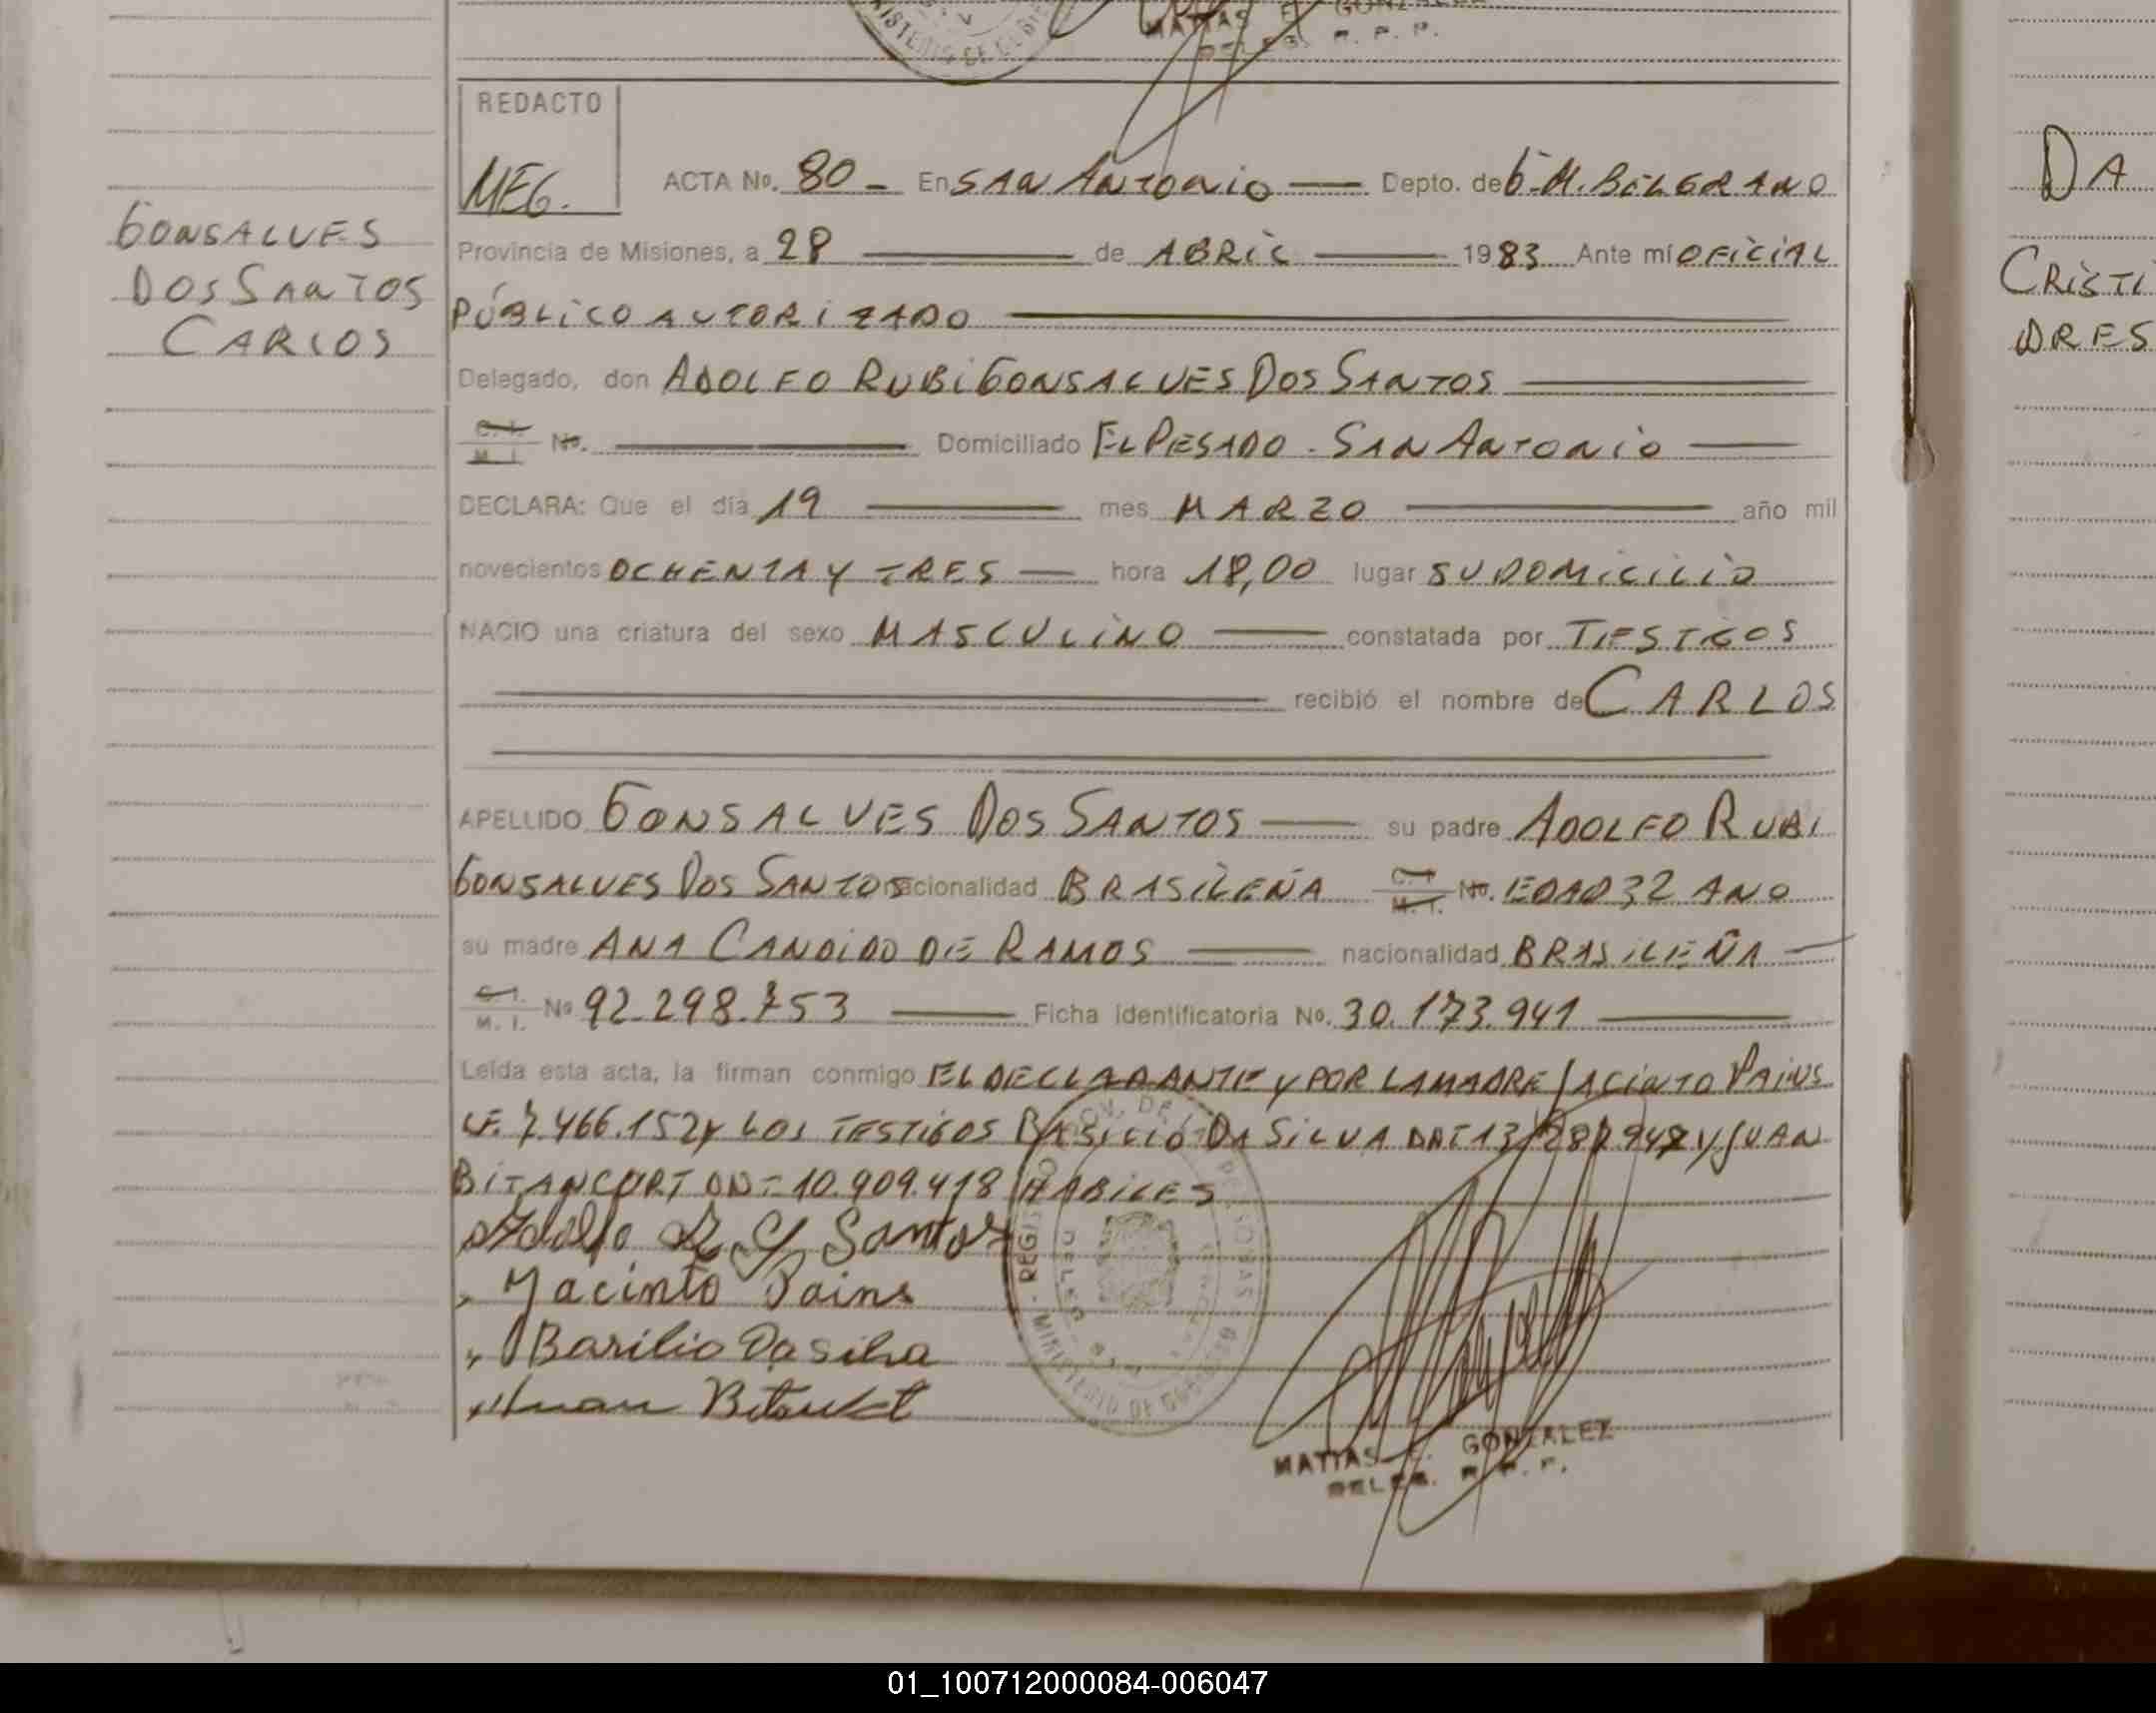 MATIAS E. GONZALEZ
DELEG. R. P. P.
REDACTO
MEG.
ACTA No. 80 - En SAN ANTONIO Depto. de G. M. BELGRANO
Provincia de Misiones, a 28 de ABRIL 1983 Ante mi OFICIAL
PÚBLICO AUTORIZADO
Delegado, don ADOLFO RUBI GONSALVES DOS SANTOS
C. I. M. I. No. Domiciliado EL PESADO - SAN ANTONIO
DECLARA: Que el día 19 mes MARZO año mil
novecientos OCHENTA Y TRES hora 18,00 lugar SU DOMICILIO
NACIO una criatura del sexo MASCULINO constatada por TESTIGOS
recibió el nombre de CARLOS
APELLIDO GONSALVES DOS SANTOS su padre ADOLFO RUBI
GONSALVES DOS SANTOS nacionalidad BRASILEÑA C. I. M. I. No. EDAD 32 AÑO
su madre ANA CANDIDO DE RAMOS nacionalidad BRASILEÑA
C. I. M. I. No 92.298.753 Ficha identificatoria No. 30.173.941
Leída esta acta, la firman conmigo EL DECLARANTE Y POR LA MADRE JACINTO PAINS
7.466.152 Y LOS TESTIGOS BASILIO DA SILVA DNI 13. Y JUAN
BITANCURT DNI 10.909.418 HABILES
Adolfo R. G. Santos
Jacinto Pains
Basilio Da silva
Juan
MATIAS E. GONZALEZ
DELEG. R. P. P.
GONSALVES
DOS SANTOS
CARLOS
DA
CRISTI
DRES
01_100712000084-006047